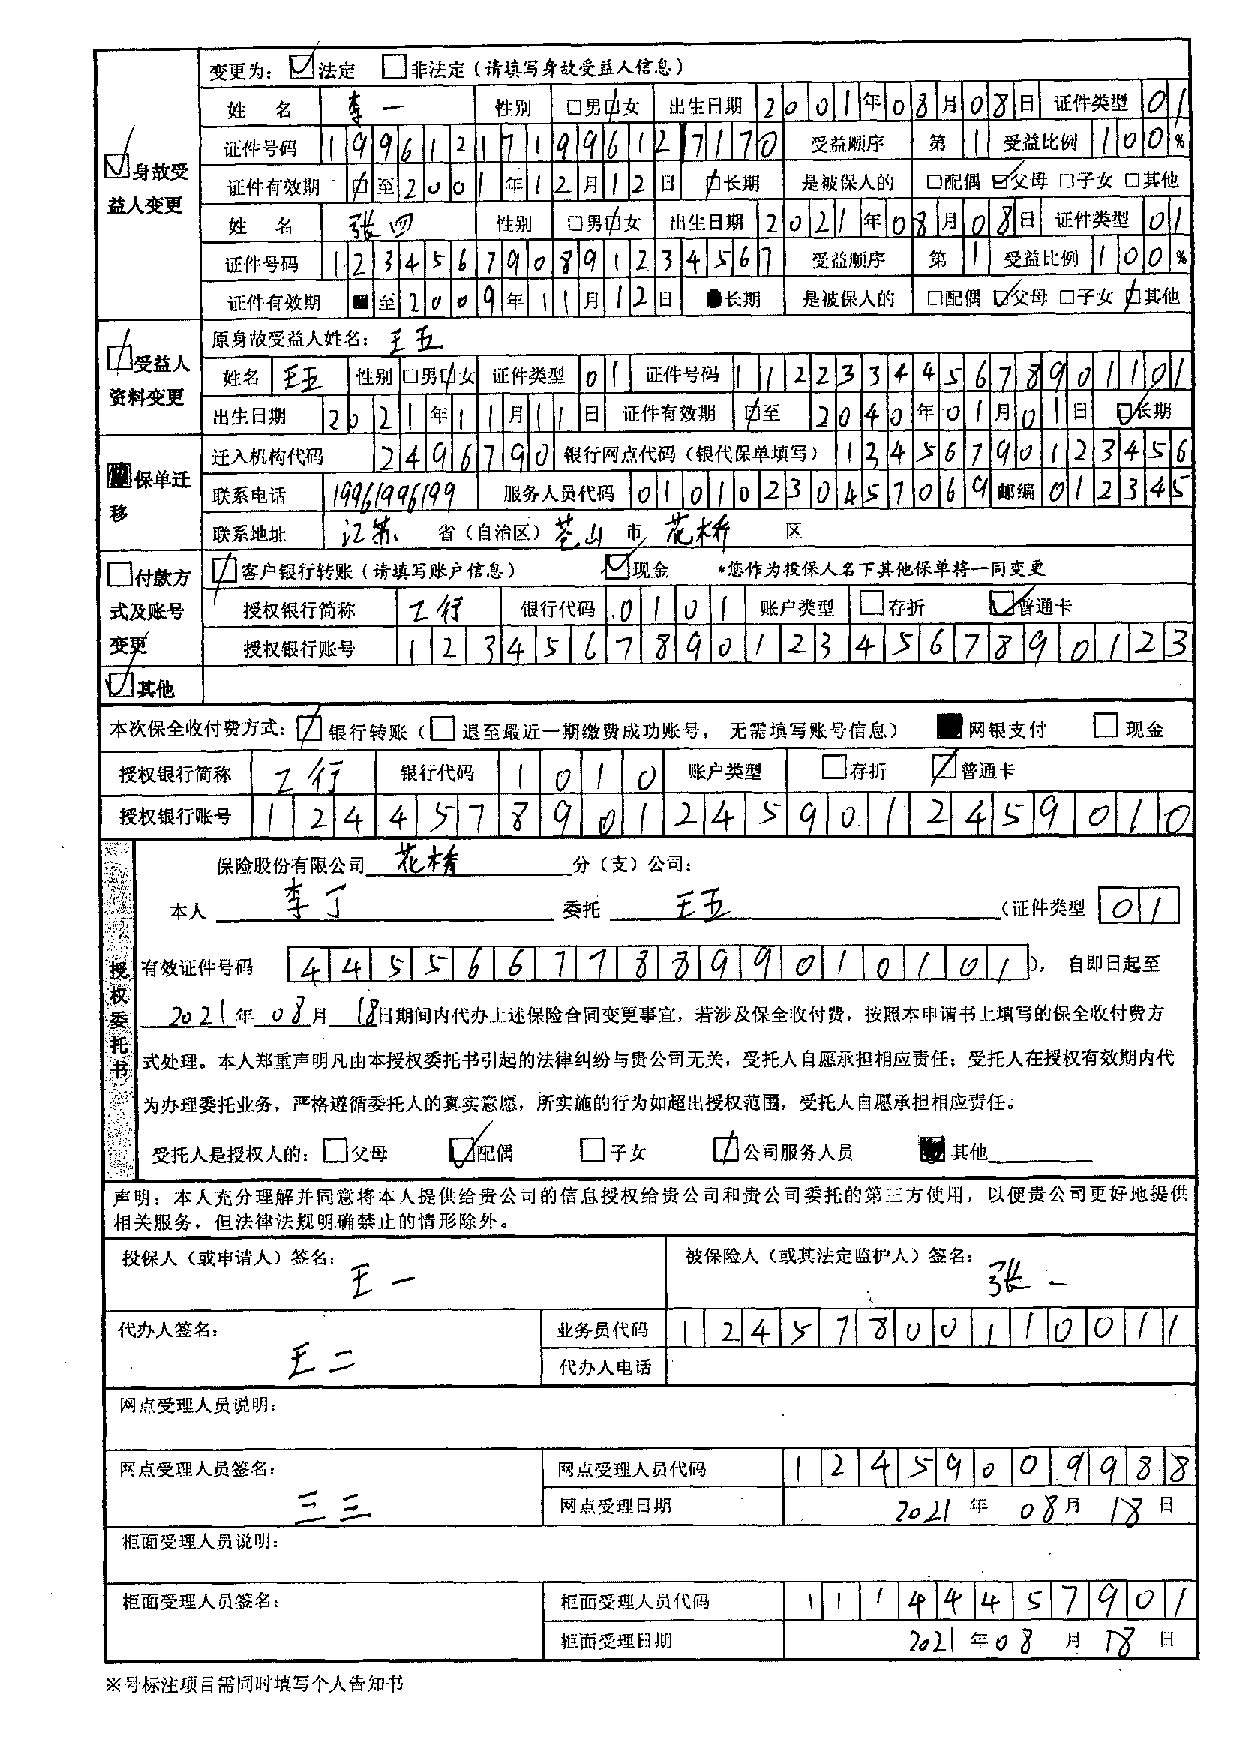 变更为：☑法定 □非法定（请填写身故受益人信息）
☑身故受益人变更
姓 名 李一 性别 □男☑女 出生日期 2001年08月08日 证件类型 01
证件号码 199612171996127170 受益顺序 第1 受益比例 100%
证件有效期 ☑至2001年12月12日 ☑长期 是被保人的 □配偶☑父母□子女□其他
姓 名 张四 性别 □男☑女 出生日期 2021年08月08日 证件类型 01
证件号码 123456790891234567 受益顺序 第1 受益比例 100%
证件有效期 ■至2009年11月12日 ■长期 是被保人的 □配偶☑父母□子女☑其他
☑受益人资料变更
原身故受益人姓名：王五
姓名 王五 性别□男☑女 证件类型 01 证件号码 112233445678901101
出生日期 2021年11月11日 证件有效期 ☑至 2040年01月01日 ☑长期
■保单迁移
迁入机构代码 2496790 银行网点代码（银代保单填写）12456790123456
联系电话 19961996199 服务人员代码 01010230457069 邮编 012345
联系地址 江苏 省（自治区）苍山 市 花桥 区
□付款方式及账号变更
☑客户银行转账（请填写账户信息） ☑现金 *您作为投保人名下其他保单将一同变更
授权银行简称 工行 银行代码 0101 账户类型 □存折 ☑普通卡
授权银行账号 12345678901234567890123
☑其他
本次保全收付费方式：☑银行转账（□退至最近一期缴费成功账号，无需填写账号信息） ■网银支付 □现金
授权银行简称 工行 银行代码 1010 账户类型 □存折 ☑普通卡
授权银行账号 12445789012459012459010
授权委托书
保险股份有限公司 花桥 分（支）公司：
本人 李丁 委托 王五 （证件类型 01
有效证件号码 445566778899010101），自即日起至
2021年08月18日期间内代办上述保险合同变更事宜，若涉及保全收付费，按照本申请书上填写的保全收付费方
式处理。本人郑重声明凡由本授权委托书引起的法律纠纷与贵公司无关，受托人自愿承担相应责任；受托人在授权有效期内代
为办理委托业务，严格遵循委托人的真实意愿，所实施的行为如超出授权范围，受托人自愿承担相应责任。
受托人是授权人的：□父母 ☑配偶 □子女 ☑公司服务人员 ■其他
声明：本人充分理解并同意将本人提供给贵公司的信息授权给贵公司和贵公司委托的第三方使用，以便贵公司更好地提供
相关服务，但法律法规明确禁止的情形除外。
投保人（或申请人）签名：王一 被保险人（或其法定监护人）签名：张一
代办人签名：王二 业务员代码 12457800110011
代办人电话
网点受理人员说明：
网点受理人员签名：三三 网点受理人员代码 12459009988
网点受理日期 2021年08月18日
柜面受理人员说明：
柜面受理人员签名： 柜面受理人员代码 11144457901
柜面受理日期 2021年08月18日
※号标注项目需同时填写个人告知书